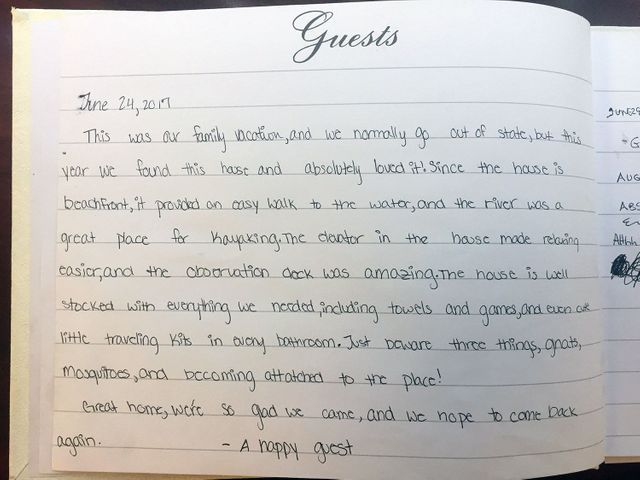 Guests
June 24, 2017
This was our family vacation, and we normally go out of state, but this
year we found this house and absolutely loved it! Since the house is
beachfront, it provided an easy walk to the water, and the river was a
great place for kayaking. The elevator in the house made relaxing
easier, and the observation deck was amazing. The house is well
stocked with everything we needed, including towels and games, and even cute
little traveling kits in every bathroom. Just beware three things, gnats,
mosquitoes, and becoming attatched to the place!
Great home, we're so glad we came, and we hope to come back
again. - A happy guest
June 29
G
AUG
ABS
Ahhh